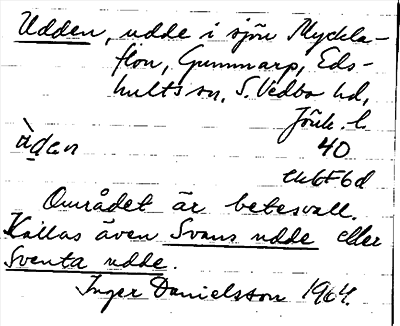 Udden, udde i sjön Myckla-
flon, Gummarp, Eds-
hults sn, S. Vedbo hd,
Jönk. l.
ùden 40
Området är betesvall.
Kallas även Svans udde eller
Sventa udde.
Inger Danielsson 1964.